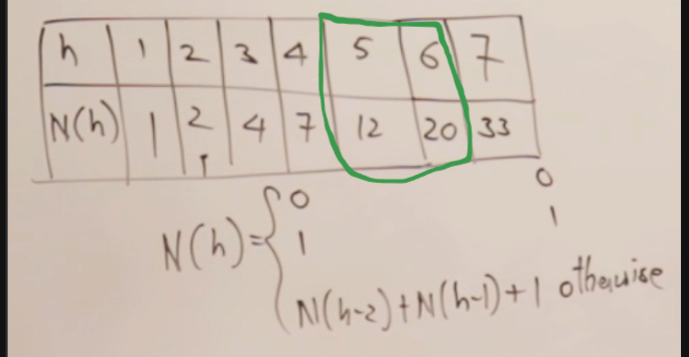 h 1 2 3 4 5 6 7
N(h) 1 2 4 7 12 20 33
0 0
N(h)= 1 1
N(h-2)+N(h-1)+1 otherwise